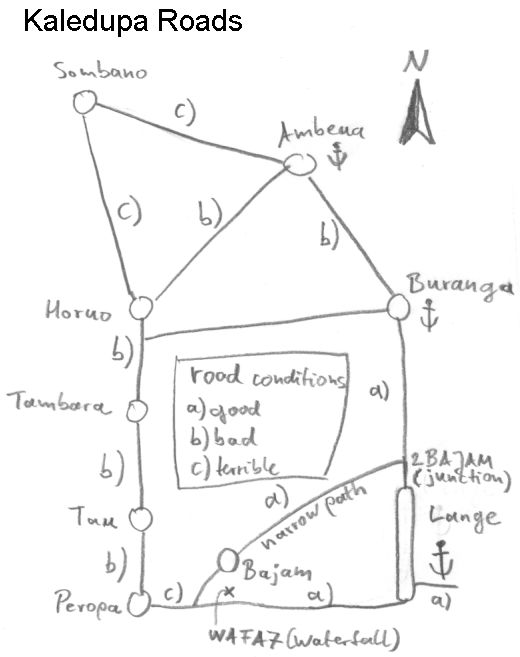 Kaledupa Roads
Sombano
N
c)
Ambeua
c)
b)
b)
Horuo
Buranga
b)
road conditions
a) good
b) bad
c) terrible
a)
Tambara
b)
2 BAJAM
(junction)
a)
narrow path
Lange
Tau
b)
Bajam
Peropa
c)
a)
a)
WAFA7 (waterfall)